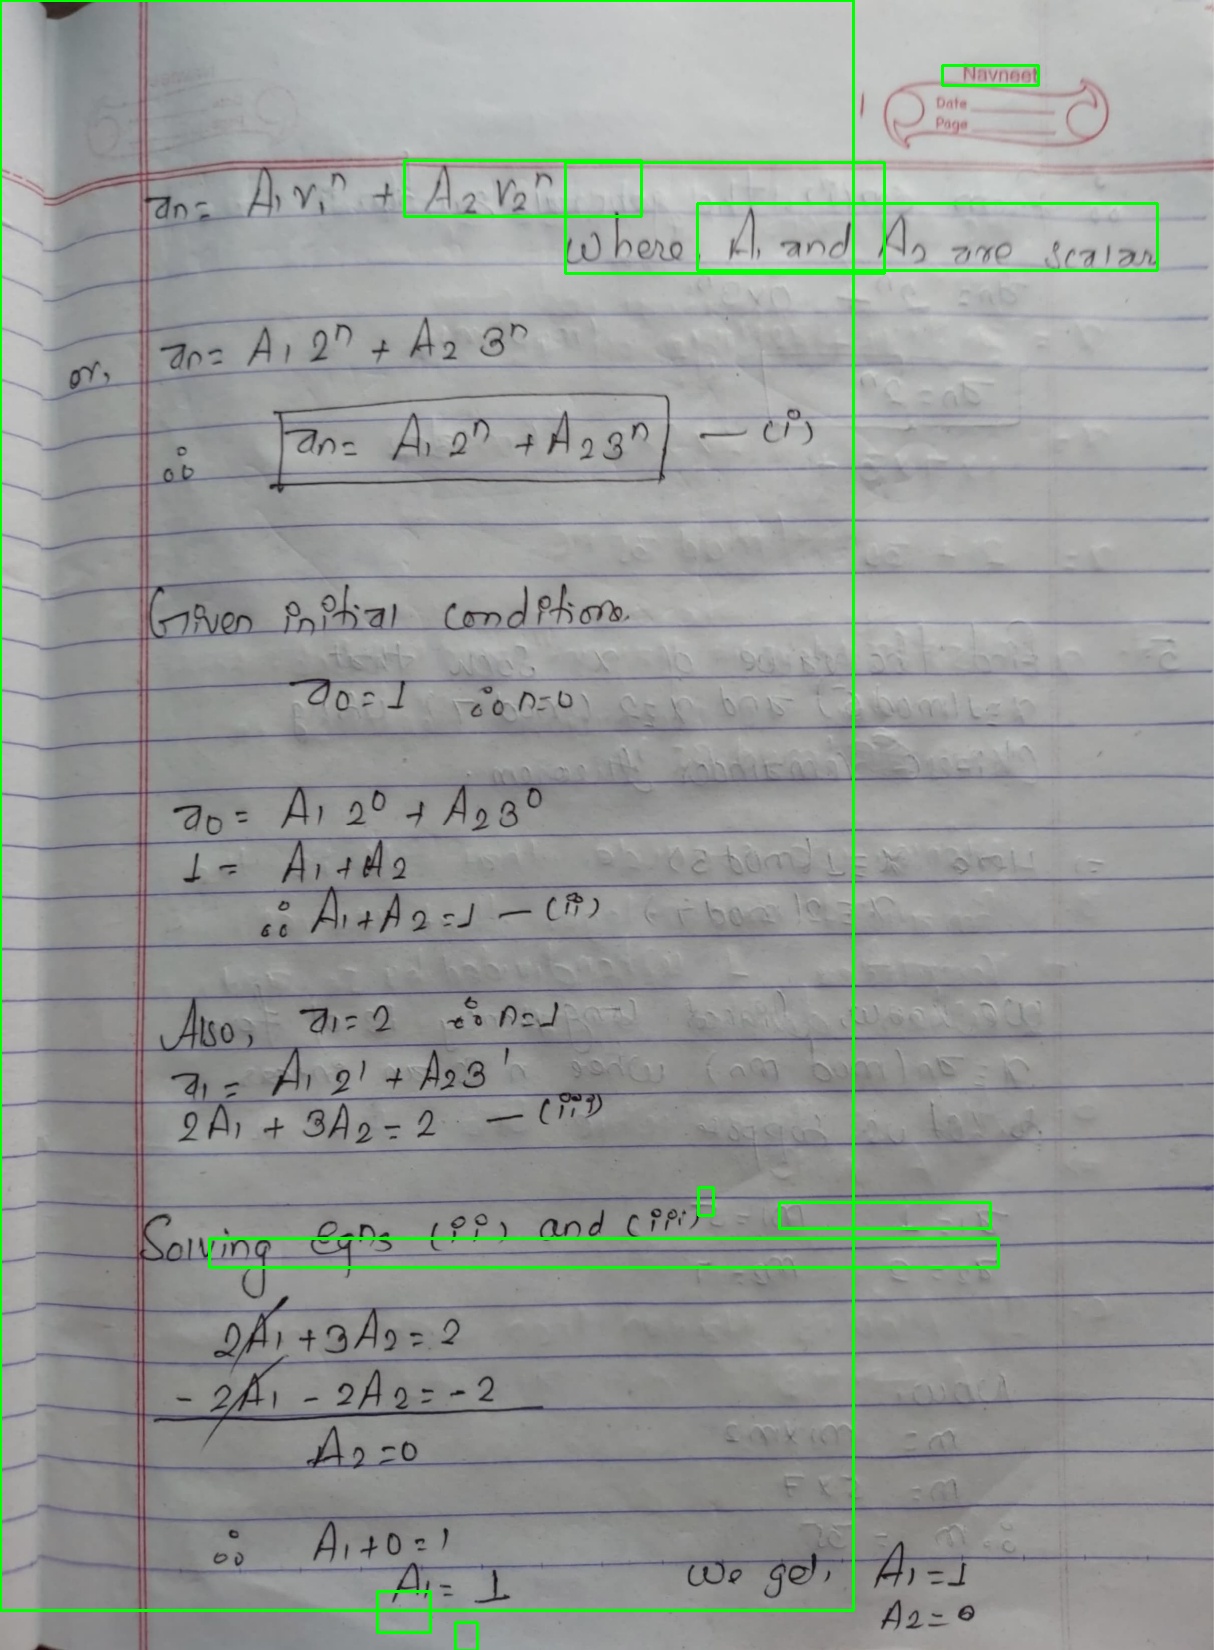 Navneet
Date
Page
an = A₁ r₁ⁿ + A₂ r₂ⁿ
where, A₁ and A₂ are scalar
or, an = A₁ 2ⁿ + A₂ 3ⁿ
∴ an = A₁ 2ⁿ + A₂ 3ⁿ — (i)
Given initial conditions.
a₀ = 1 ∴ n=0
a₀ = A₁ 2⁰ + A₂ 3⁰
1 = A₁ + A₂
∴ A₁ + A₂ = 1 — (ii)
Also, a₁ = 2 ∴ n=1
a₁ = A₁ 2¹ + A₂ 3¹
2A₁ + 3A₂ = 2 — (iii)
Solving eqns (ii) and (iii)
2A₁ + 3A₂ = 2
- 2A₁ - 2A₂ = -2
A₂ = 0
∴ A₁ + 0 = 1
A₁ = 1 we get, A₁ = 1
A₂ = 0